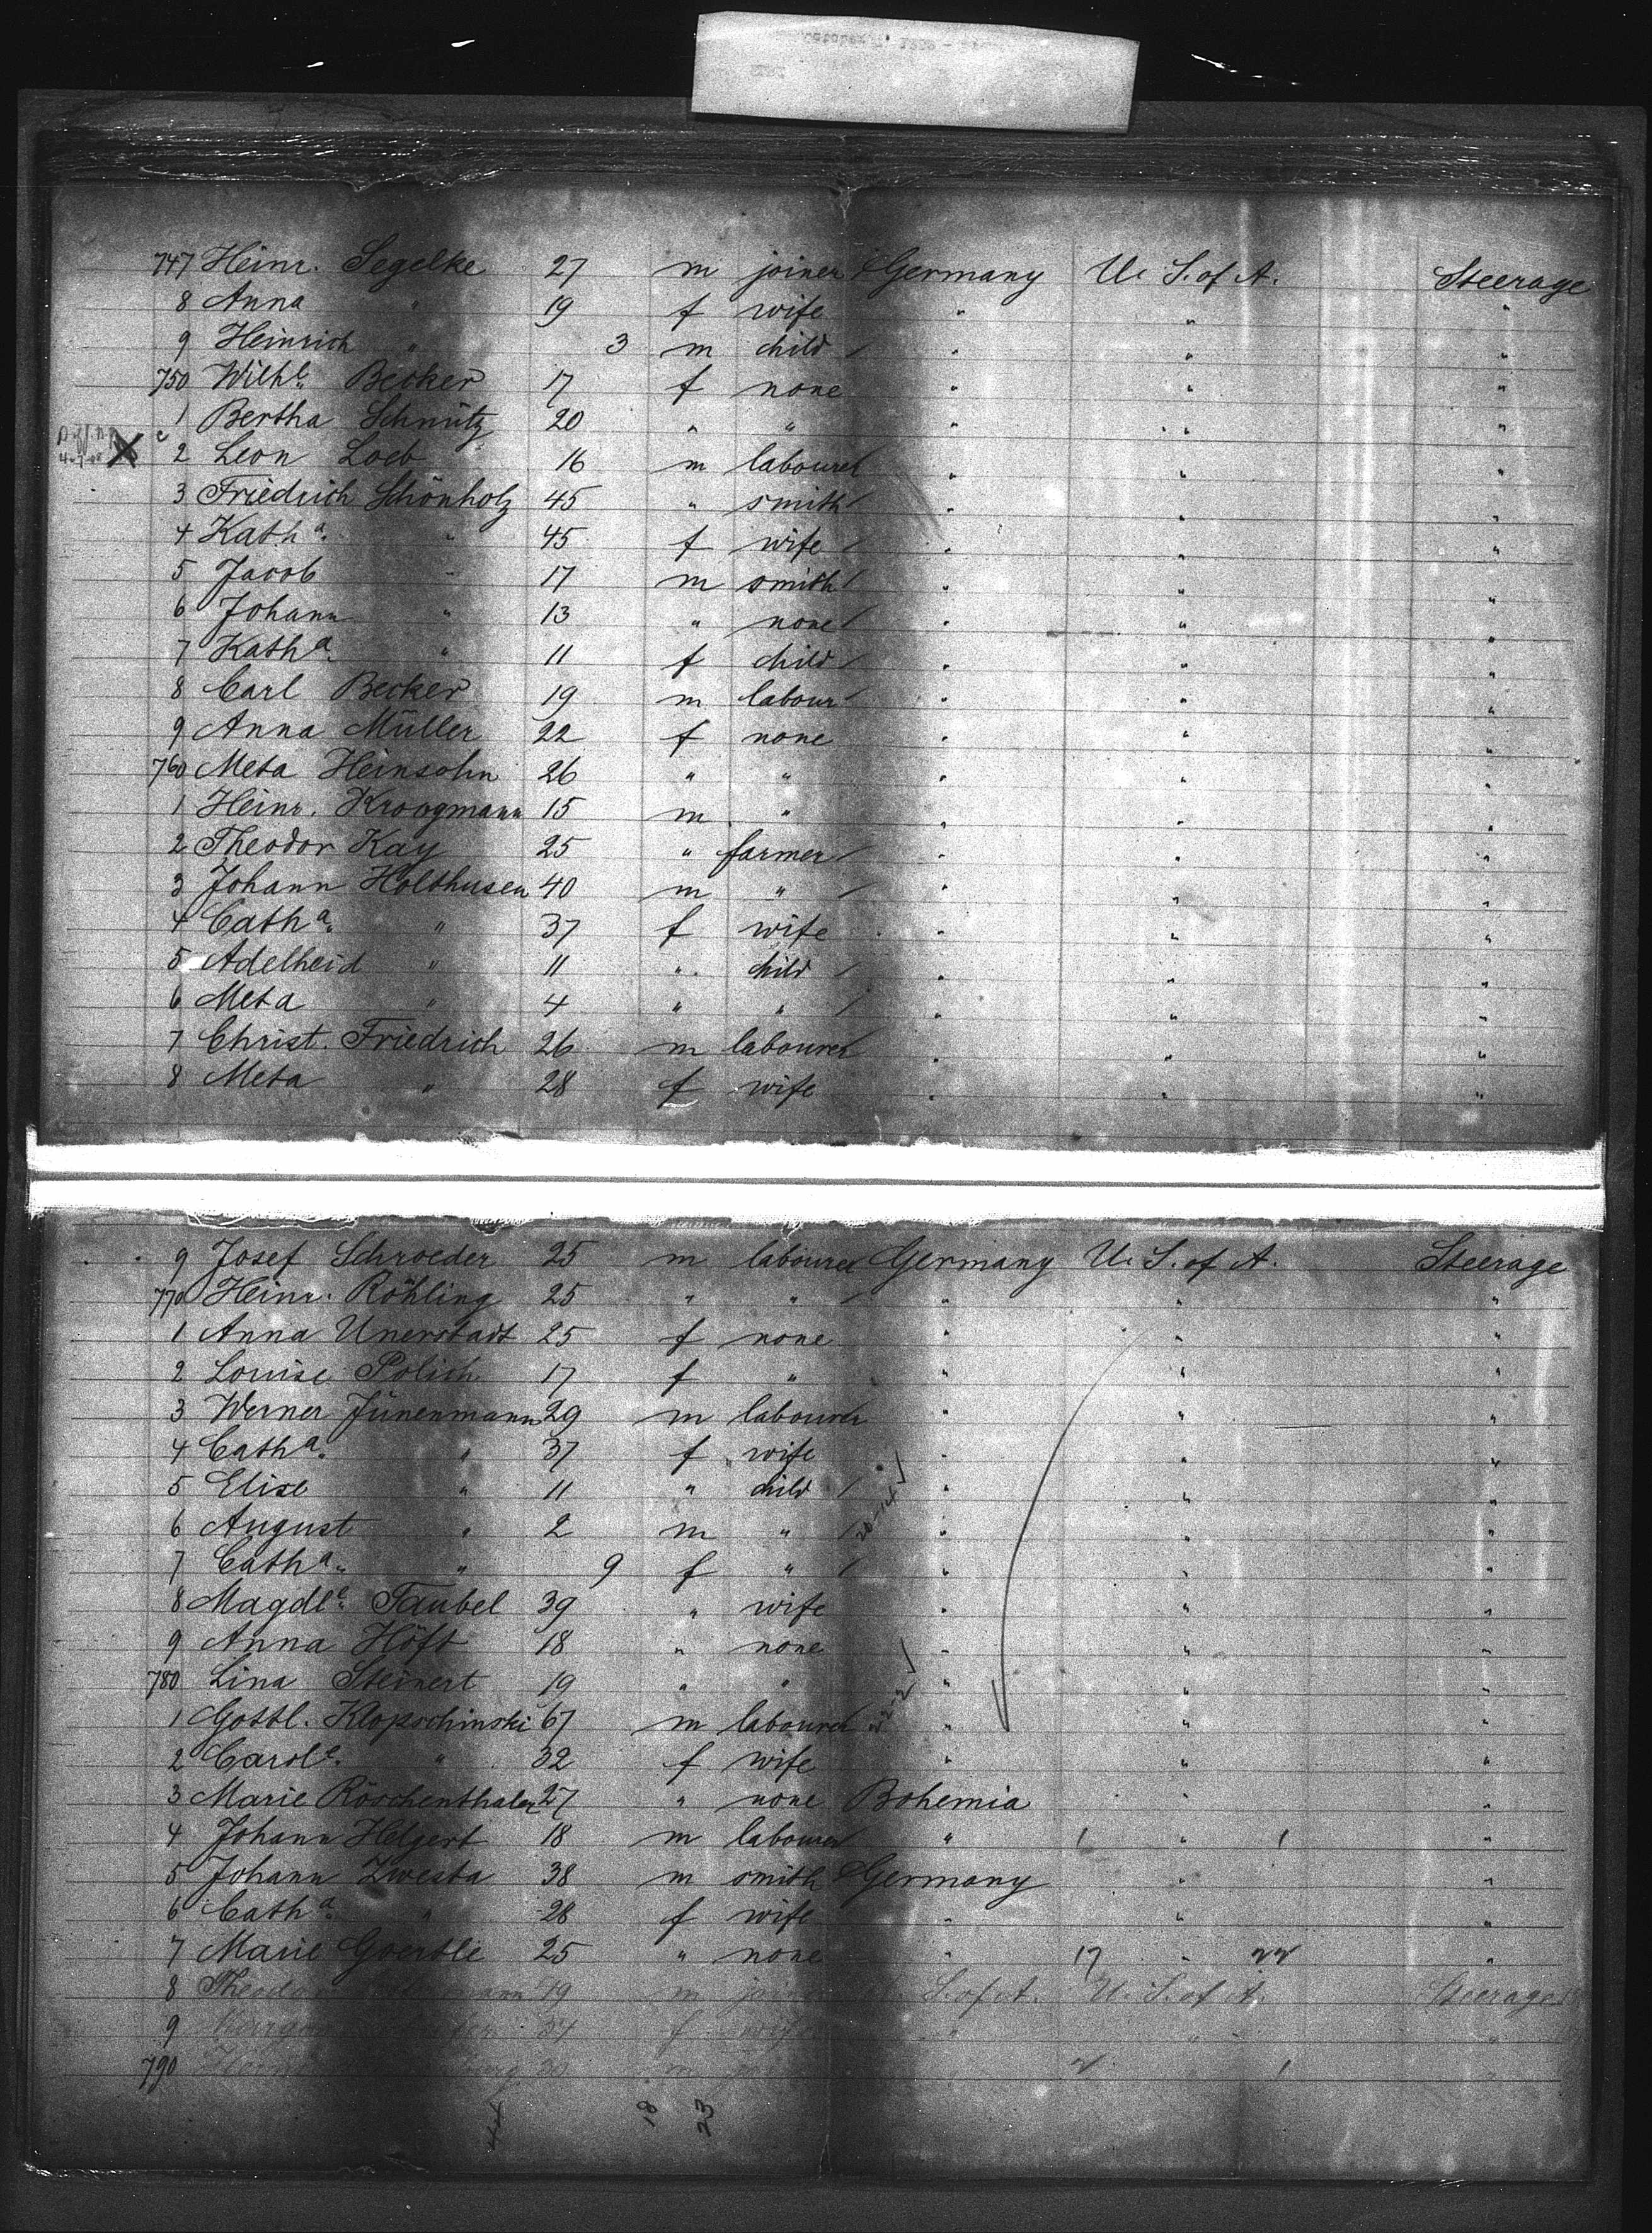 747 Heinr. Segelke 27 m joiner Germany U. S. of A. Steerage
8 Anna " 19 f wife " " "
9 Heinrich " 3 m child " " "
750 Wilhe. Becker 17 f none " " "
1 Bertha Schmütz 20 " " " " "
2 Leon Loeb 16 m labourer " " "
3 Friedrich Schönholz 45 " smith " " "
4 Katha. " 45 f wife " " "
5 Jacob " 17 m smith " " "
6 Johann " 13 " none " " "
7 Katha. " 11 f child " " "
8 Carl Becker 19 m labour " " "
9 Anna Müller 22 f none " " "
760 Meta Heinsohn 26 " " " " "
1 Heinr. Kroogmann 15 m " " " "
2 Theodor Kay 25 " farmer " " "
3 Johann Holthusen 40 m " " " "
4 Catha. " 37 f wife " " "
5 Adelheid " 11 " child " " "
6 Meta " 4 " " " " "
7 Christ. Friedrich 26 m labourer " " "
8 Meta " 28 f wife " " "
9 Josef Schroeder 25 m labourer Germany U. S. of A. Steerage
770 Heinr. Röhling 25 " " " " "
1 Anna Unerstadt 25 f none " " "
2 Louise Polich 17 f " " " "
3 Werner Jünenmann 29 m labourer " " "
4 Catha. " 37 f wife " " "
5 Elise " 11 " child " " "
6 August " 2 m " " " "
7 Catha. " 9 f " " " "
8 Magdle. Taubel 39 " wife " " "
9 Anna Höft 18 " none " " "
780 Lina Steinert 19 " " " " "
1 Gottl. Klopschinski 67 m labourer " " "
2 Carole. " 32 f wife " " "
3 Marie Röschenthaler 27 " none Bohemia " "
4 Johann Helgert 18 m labourer " 1 " 1 "
5 Johann Zwesta 38 m smith Germany " "
6 Catha. " 28 f wife " " "
7 Marie Goertle 25 " none " 17 " 22 "
8 Theodor 49 m joiner S. of A. U. S. of A. Steerage
9 34 f wife " " "
790 30 m 2 1 "
18 23